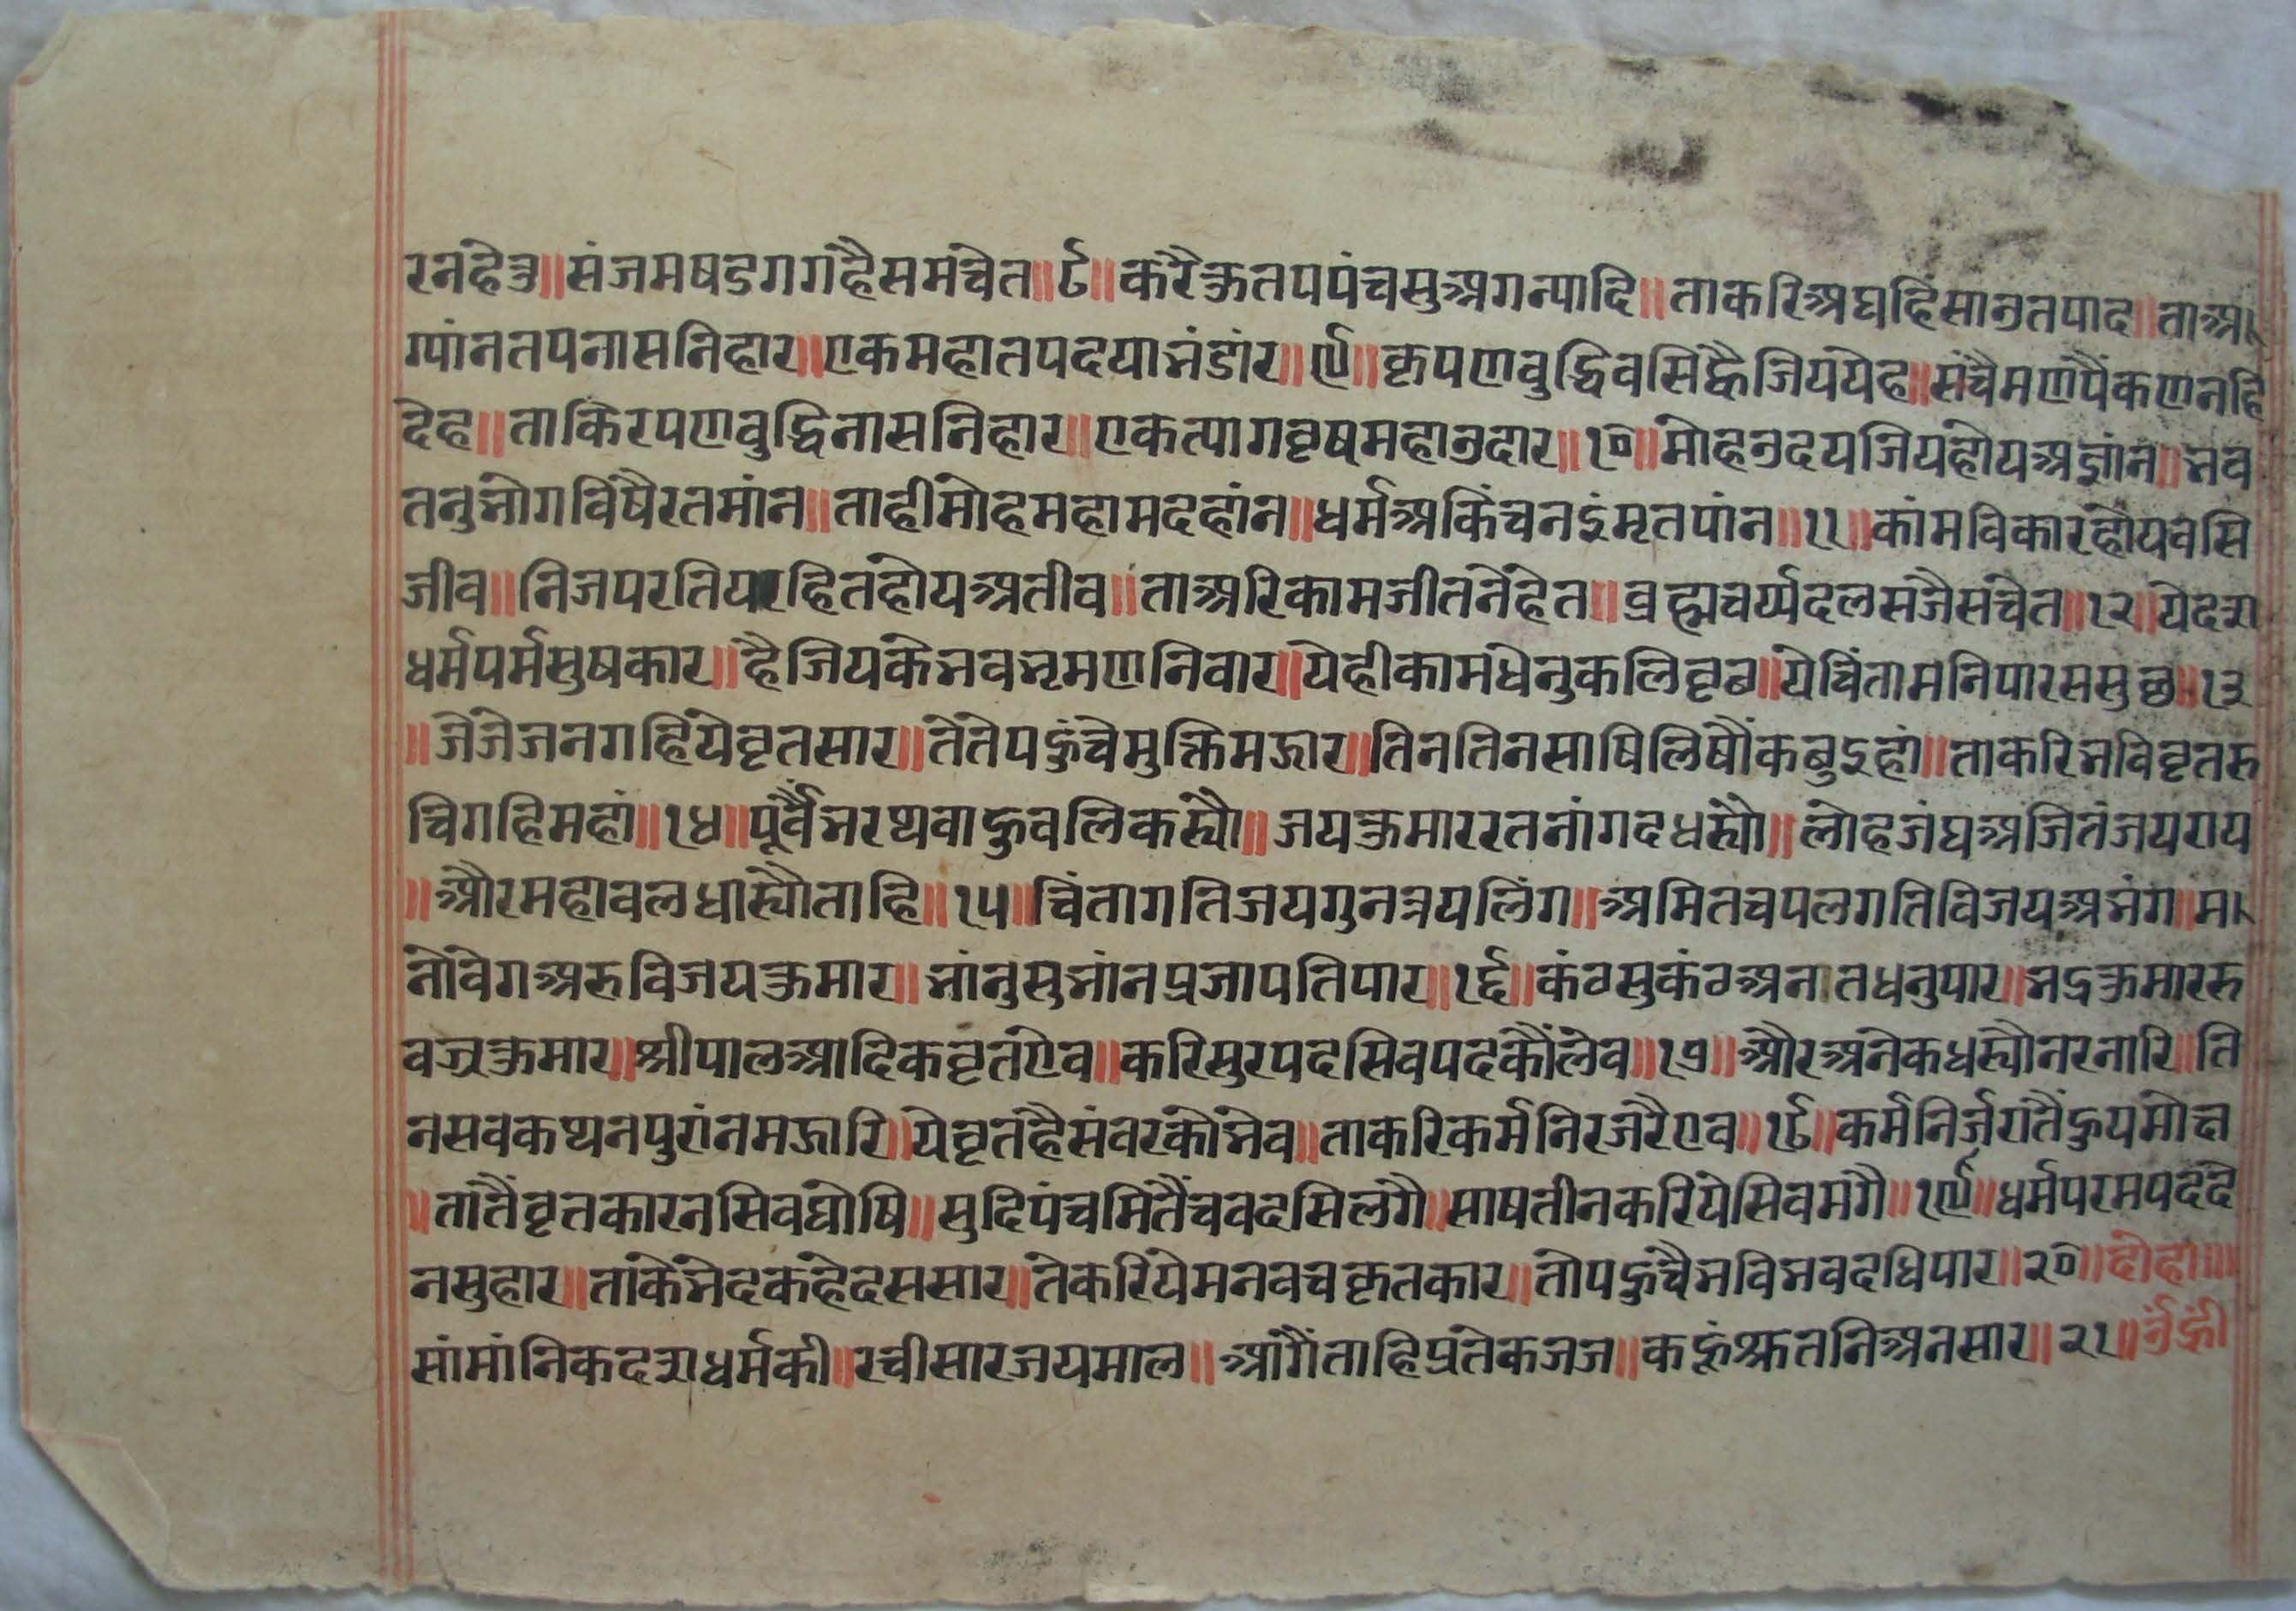 रनहेउ॥संजमषडगगहैसमचेत॥८॥करैकुतपपंचसुअगन्यादि॥ताकरिअघहिंसाउतपाद॥ताअ।
ग्पांनतपनासनिहार॥एकमहातपदयाभंडार॥९॥कृपणवुद्धिवसिह्वैजिययेह॥संचैमणपैंकणनहि
देह॥ताकिरपणवुद्धिनासनिहार॥एकत्पागवृषमहाउदार॥१०॥मोहउदयजियहोयअज्ञांन॥भव
तनुभोगविषैरतमांन॥ताहीमोहमहामदहांन॥धर्मअकिंचनइंमृतपांन॥११॥कांमविकारहोयवसि
जीव॥निजपरतियरहितहोयअतीव॥ताअरिकामजीतनेहेत॥व्रह्मचर्य्यदलसजैसचेत॥१२॥येदश
धर्मपर्मसुषकार॥हैजियकेभवभृमणनिवार॥येहीकामधेनुकलिवृछ॥येचिंतामनिपारससुछ॥१३
॥जेजेजनगहियेवृतसार॥तेतेपहुंचेमुक्तिमझार॥तिनतिनसाषिलिषौंकबुइहां॥ताकरिभविवृतरु
चिगहिमहां॥१४॥पूर्वैभरथवाहुवलिकस्यौ॥जयकुमाररतनांगदधस्यौ॥लोहजंघअजितंजयराय
॥औरमहावलधास्यौताहि॥१५॥चिंतागतिजयगुनत्रयलिंग॥अमितचपलगतिविजयअभंग॥म।
नोवेगअरुविजयकुमार॥भांनुसुभांनप्रजापतिपार॥१६॥कंठसुकंठअनातधनुपार॥भद्रकुमाररु
वज्रकुमार॥श्रीपालआदिकवृतऐव॥करिसुरपदसिवपदकौंलेव॥१७॥औरअनेकधस्यौनरनारि॥ति
नसवकथनपुरांनमझारि॥येवृतहैसंवरकोभेव॥ताकरिकर्मनिरजरैएव॥१८॥कर्मनिर्जरातैंहुयमोक्ष
॥तांतैंवृतकारनसिवघोषि॥सुदिपंचमितैंचवदसिलगै॥साषतीनकरियेसिवमगै॥१९॥धर्मपरमपददे
नसुहार॥ताकेभेदकहेदससार॥तेकरियेमनवचकृतकार॥तोपहुचैभविभवदधिपार॥२०॥दोहा॥॥
सांमांनिकदशधर्मकी॥रचीसारजयमाल॥आंगैंताहिप्रतेकजज॥कहूंश्रुतनिअनसार॥२१॥